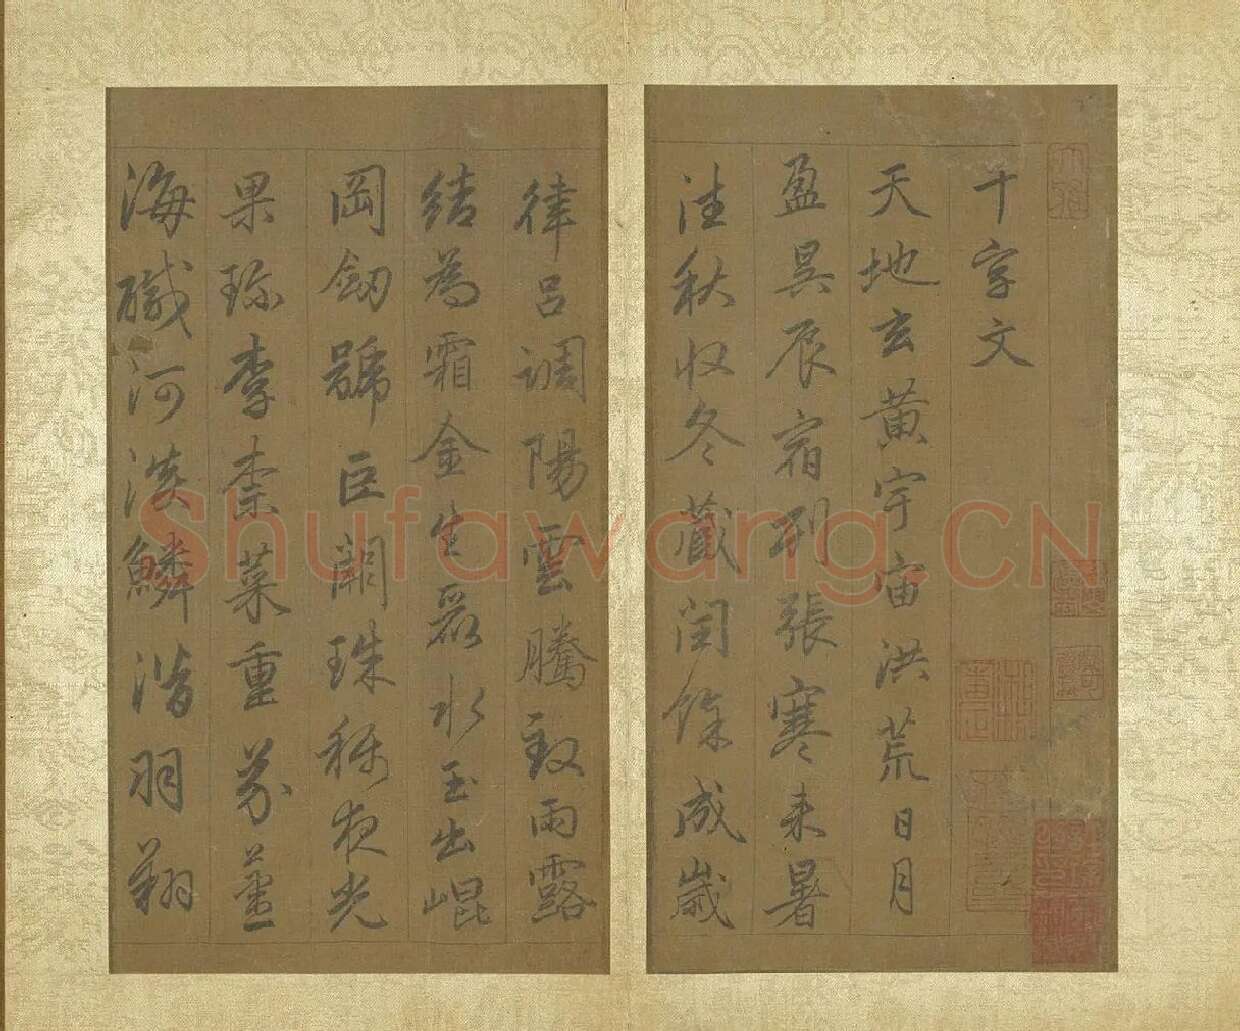 千字文
天地玄黄宇宙洪荒日月
盈昃辰宿列張寒来暑
往秋収冬藏閏餘成歲
律吕調陽雲騰致雨露
結為霜金生麗水玉出崐
岡釼號巨闕珠稱夜光
果珎李柰菜重芥薑
海醎河淡鱗潛羽翔
Shufawang.CN